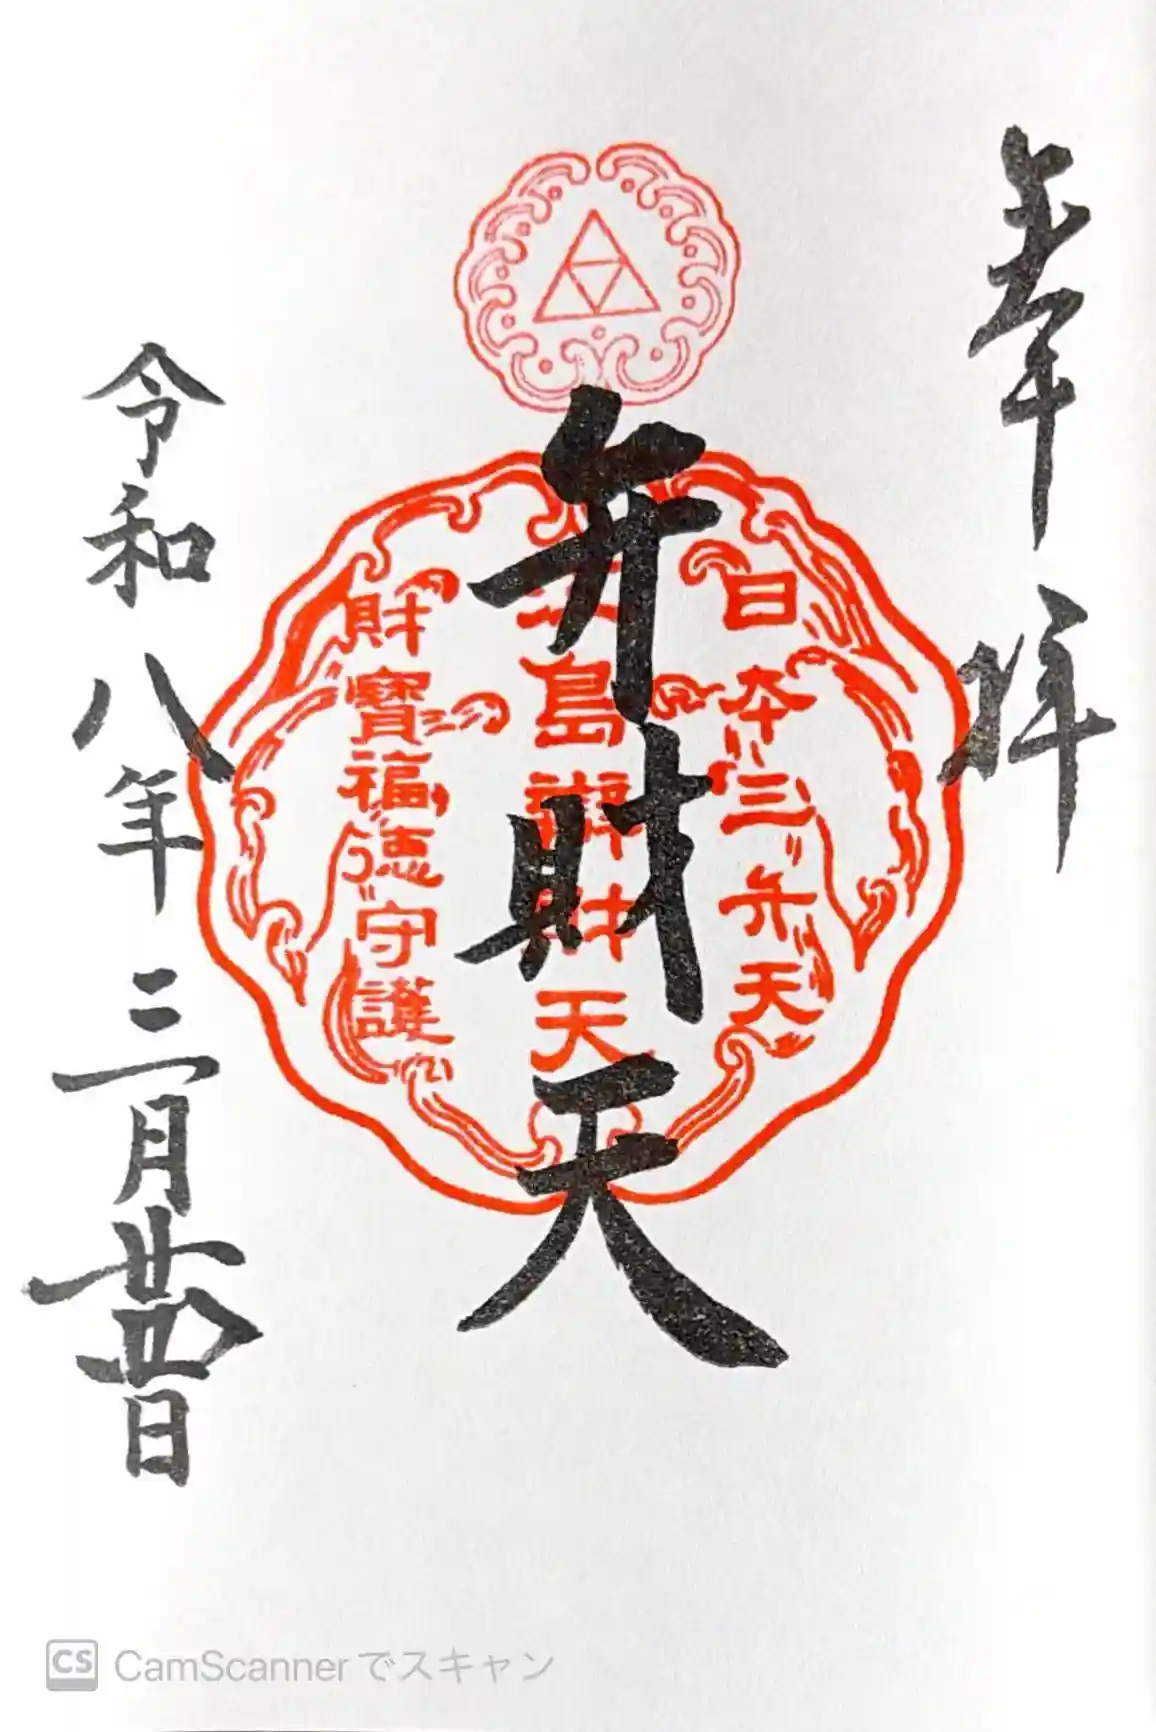 奉拝
日本三弁天
島辯財天
財寶福徳守護
弁財天
令和八年三月廿四日
CS CamScannerでスキャン